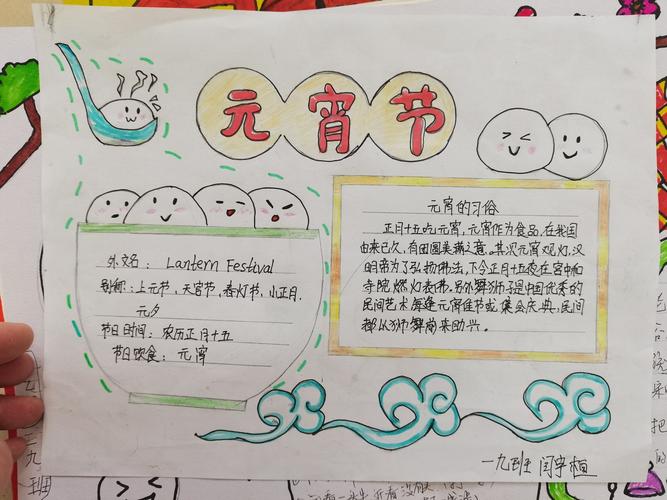 元宵节
外文名：Lantern Festival
别称：上元节，天官节，春灯节，小正月，
元夕
节日时间：农历正月十五
节日饮食：元宵
元宵的习俗
正月十五吃元宵，元宵作为食品，在我国
由来已久，有团圆美满之意，其次元宵观灯，汉
明帝为了弘扬佛法，下令正月十五夜在宫中和
寺院燃灯表佛，另外舞狮子是中国优秀的
民间艺术，每逢元宵佳节或集会庆典，民间
都以狮舞前来助兴。
一九班 闫宇桓